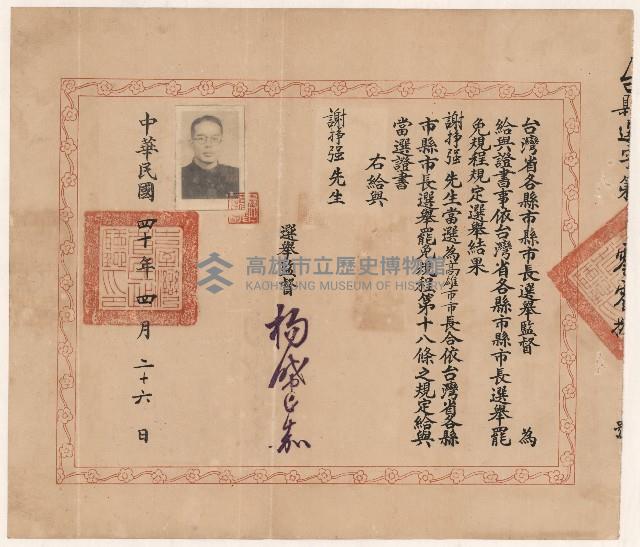 台灣省各縣市縣市長選舉監督　為
給與證書事依台灣省各縣市縣市長選舉罷
免規程規定選舉結果
謝掙强 先生當選為高雄市市長合依台灣省各縣
市縣市長選舉罷免規程第十八條之規定給與
當選證書
右給與
謝掙强 先生
選舉監督
楊
中華民國 四十年 四月 二十六日
台縣選字第
零零
號
高雄市立歷史博物館
KAOHSIUNG MUSEUM OF HISTORY